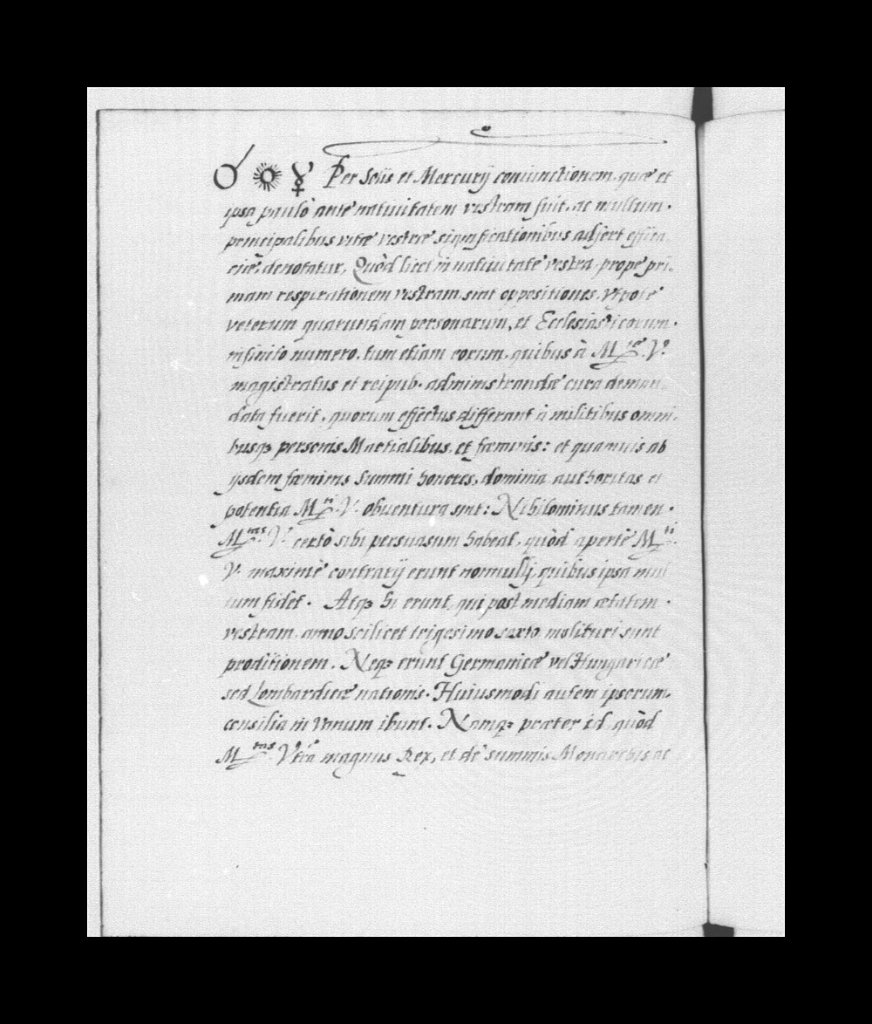 ☌ ☉ ☿ Per Solis et Mercurij coniunctionem, quæ et
ipsa paulò ante natiuitatem vestram fuit, ac nullum
principalibus vitæ vestræ significationibus adfert
denotatur, Quòd licet in natiuitate vestra, prope pri-
mam respirationem vestram, sint oppositiones, vtpote
veterum quarundam personarum, et Ecclesiasticorum
infinito numero, tum etiam eorum, quibus à M. V.
magistratus et reipub. administrandæ cura deman-
data fuerit, quorum effectus differant à militibus omni-
busq; personis Martialibus, et fœminis: et quamuis ab
ijsdem fœminis summi honores, dominia authoritas et
potentia M.ti V. obuentura sint: Nihilominus tamen
M.tas V. certò sibi persuasum habeat, quòd apertè M.ti
V. maximè contrarij erunt nonnulli, quibus ipsa mul-
tum fidet. Atq; hi erunt, qui post mediam ætatem
vestram, anno scilicet trigesimo sexto, molituri sunt
proditionem. Neq; erunt Germanicæ vel Hungaricæ
sed Lombardicæ nationis. Huiusmodi autem ipsorum
consilia in vanum ibunt. Namq; præter id, quòd
M.tas Vra magnus Rex, et de summis Monarchis ac